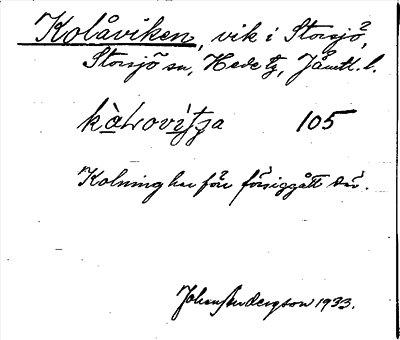 Kolåviken, vik i Storsjö,
Storsjö sn, Hede tg, Jämtl. l.
105
Kolning har förr försiggått där.
Johan Andergson 1933.